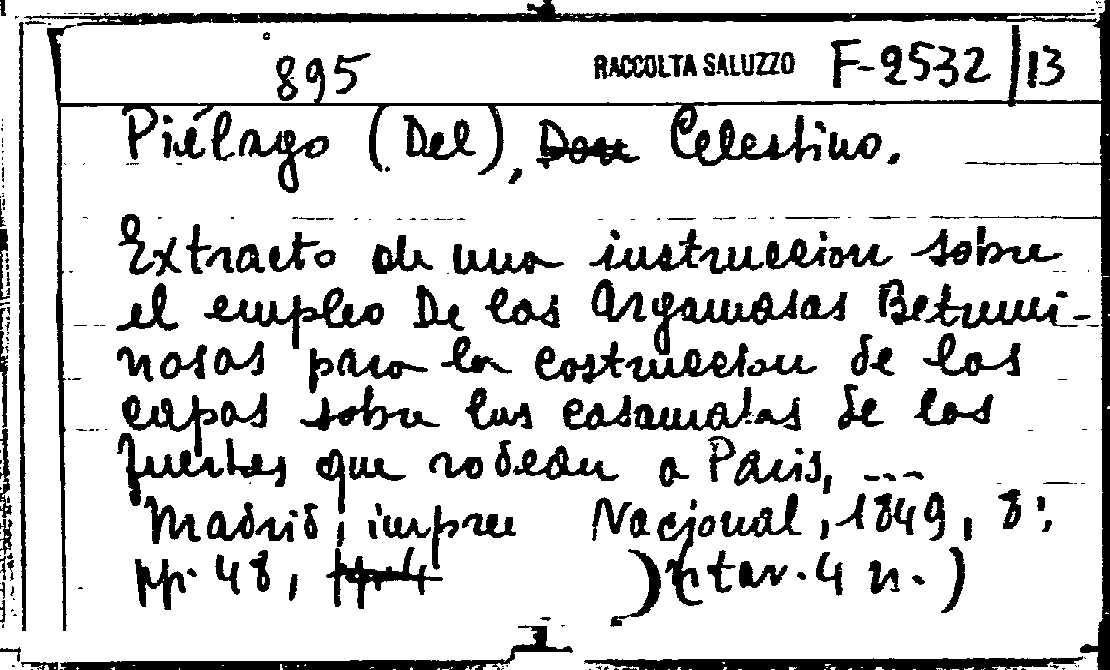 895 RACCOLTA SALUZZO F-2532/13
Piélago (Del), Don Celestino.
Extracto de una instruccion sobre
el empleo De las Argamasas Betumi-
nosas para la costruccion de las
capas sobre las casamatas de los
fuertes que rodean a Paris, ...
Madrid, impren Nacional, 1849, 8°,
pp. 48, pp. 4 ) (tav. 4 n.)